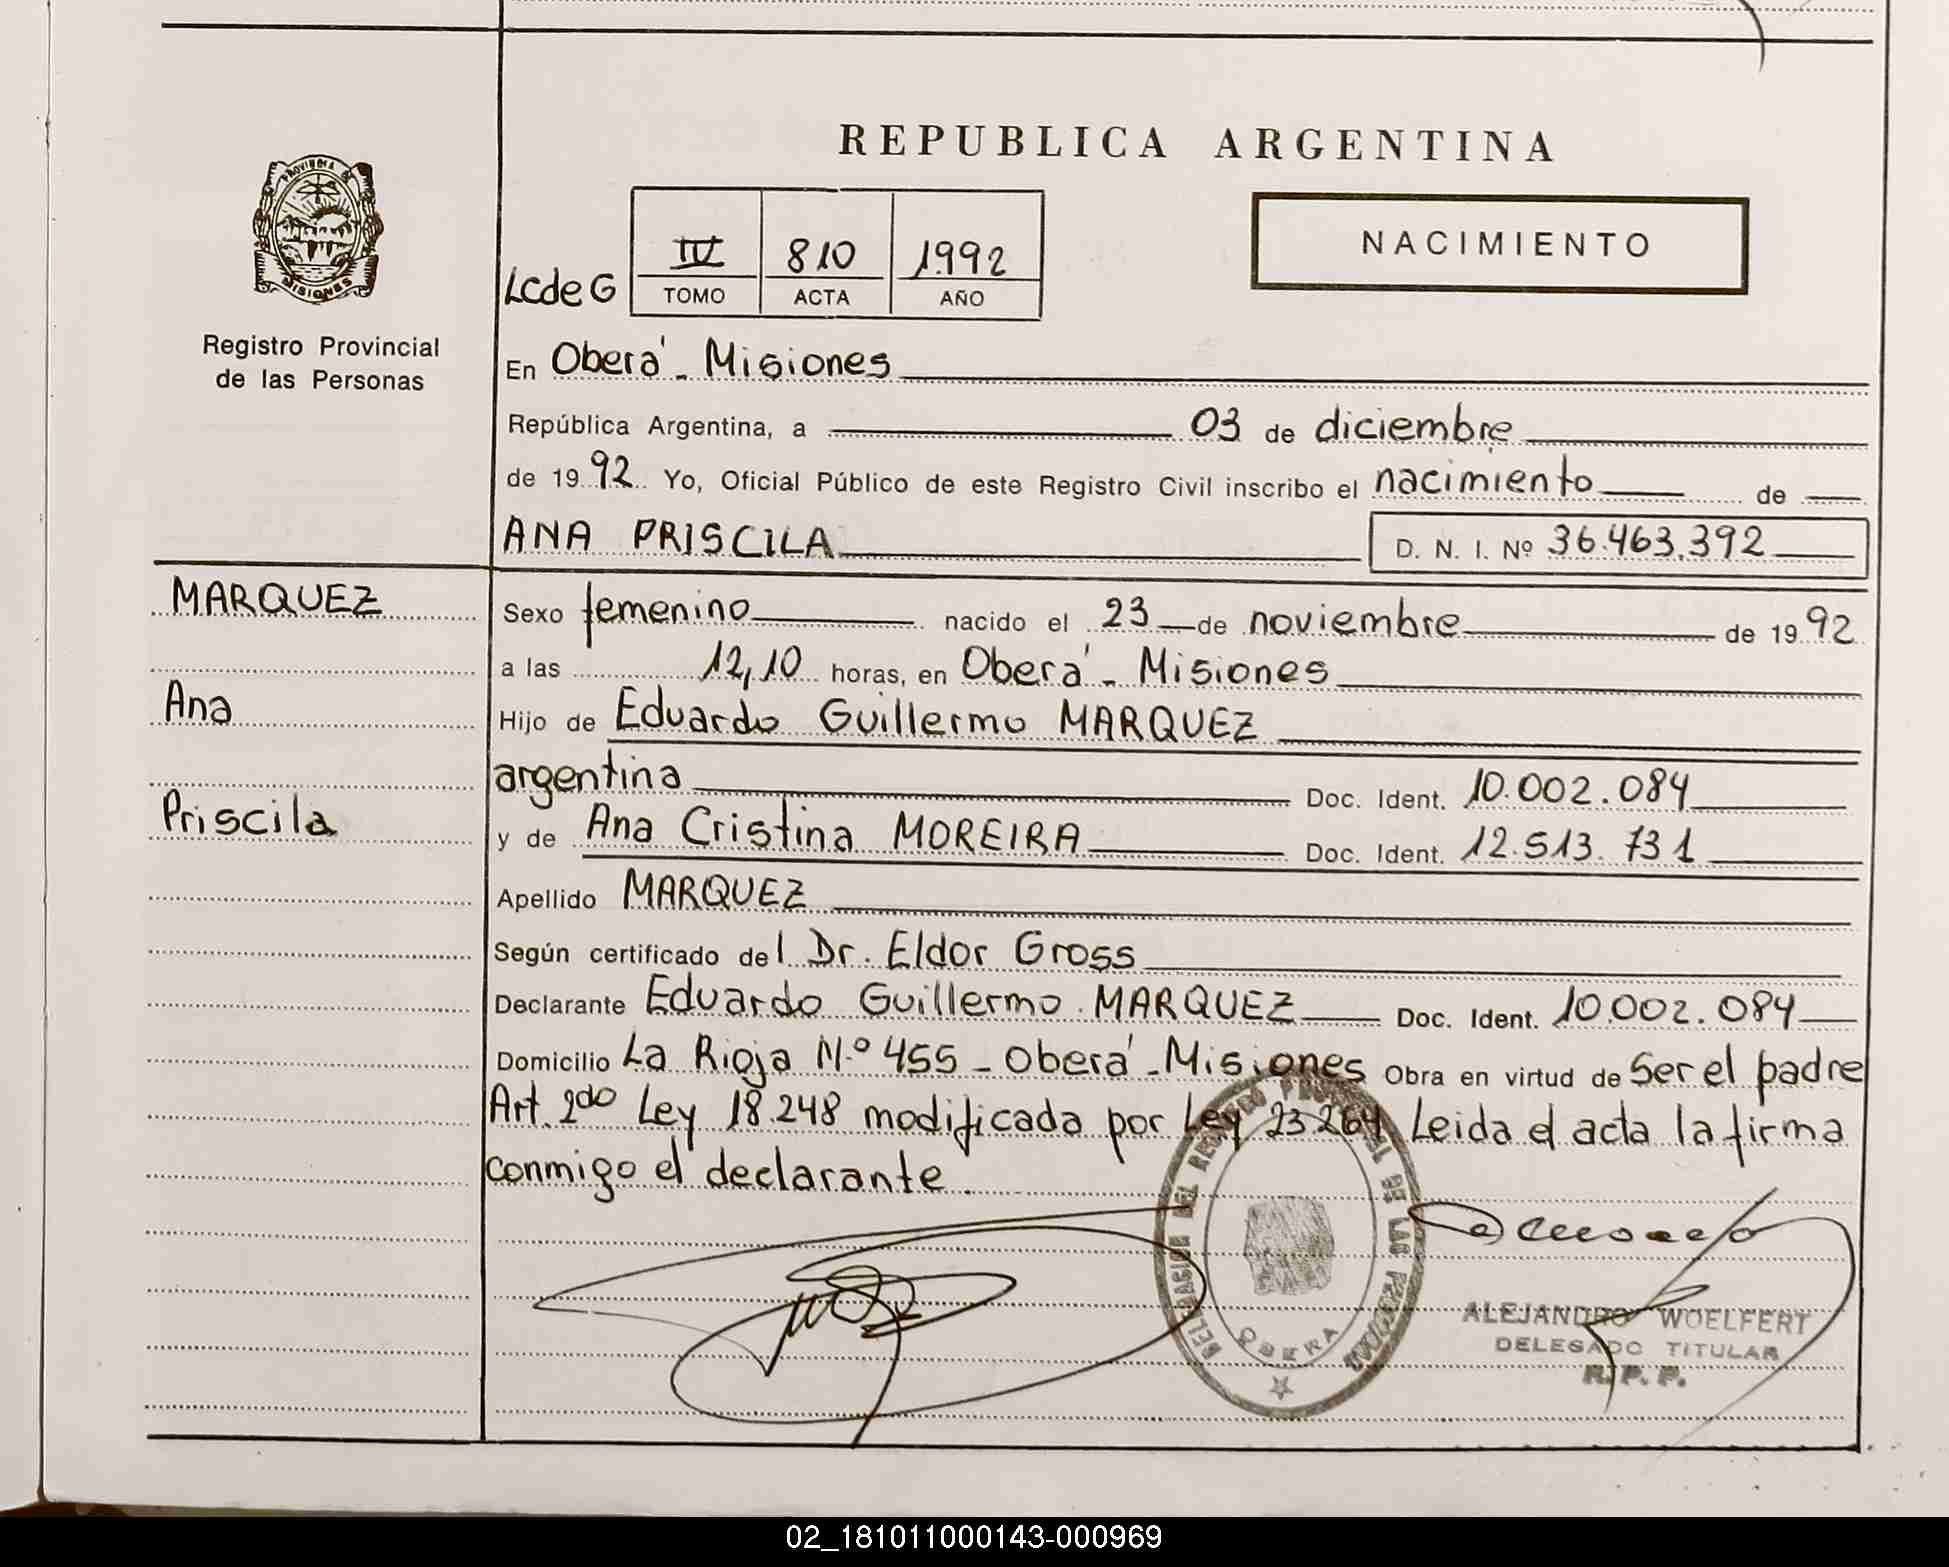 REPUBLICA ARGENTINA
PROVINCIA DE
MISIONES
Registro Provincial
de las Personas
LcdeG
IV 810 1992
TOMO ACTA AÑO
NACIMIENTO
En Oberá - Misiones
República Argentina, a 03 de diciembre
de 1992 Yo, Oficial Público de este Registro Civil inscribo el nacimiento de
ANA PRISCILA D. N. I. Nº 36.463.392
MARQUEZ
Ana
Priscila
Sexo femenino nacido el 23 de noviembre de 1992
a las 12,10 horas, en Oberá - Misiones
Hijo de Eduardo Guillermo MARQUEZ
argentina Doc. Ident. 10.002.084
y de Ana Cristina MOREIRA Doc. Ident. 12.513.731
Apellido MARQUEZ
Según certificado del Dr. Eldor Gross
Declarante Eduardo Guillermo MARQUEZ Doc. Ident. 10.002.084
Domicilio La Rioja N.º 455 - Oberá - Misiones Obra en virtud de Ser el padre
Art. 2do Ley 18.248 modificada por Ley 23.264 Leida el acta la firma
conmigo el declarante.
DELEGACION DEL REGISTRO PROVINCIAL DE LAS PERSONAS
OBERA
ALEJANDRO WOELFERT
DELEGADO TITULAR
R. P. P.
02_181011000143-000969